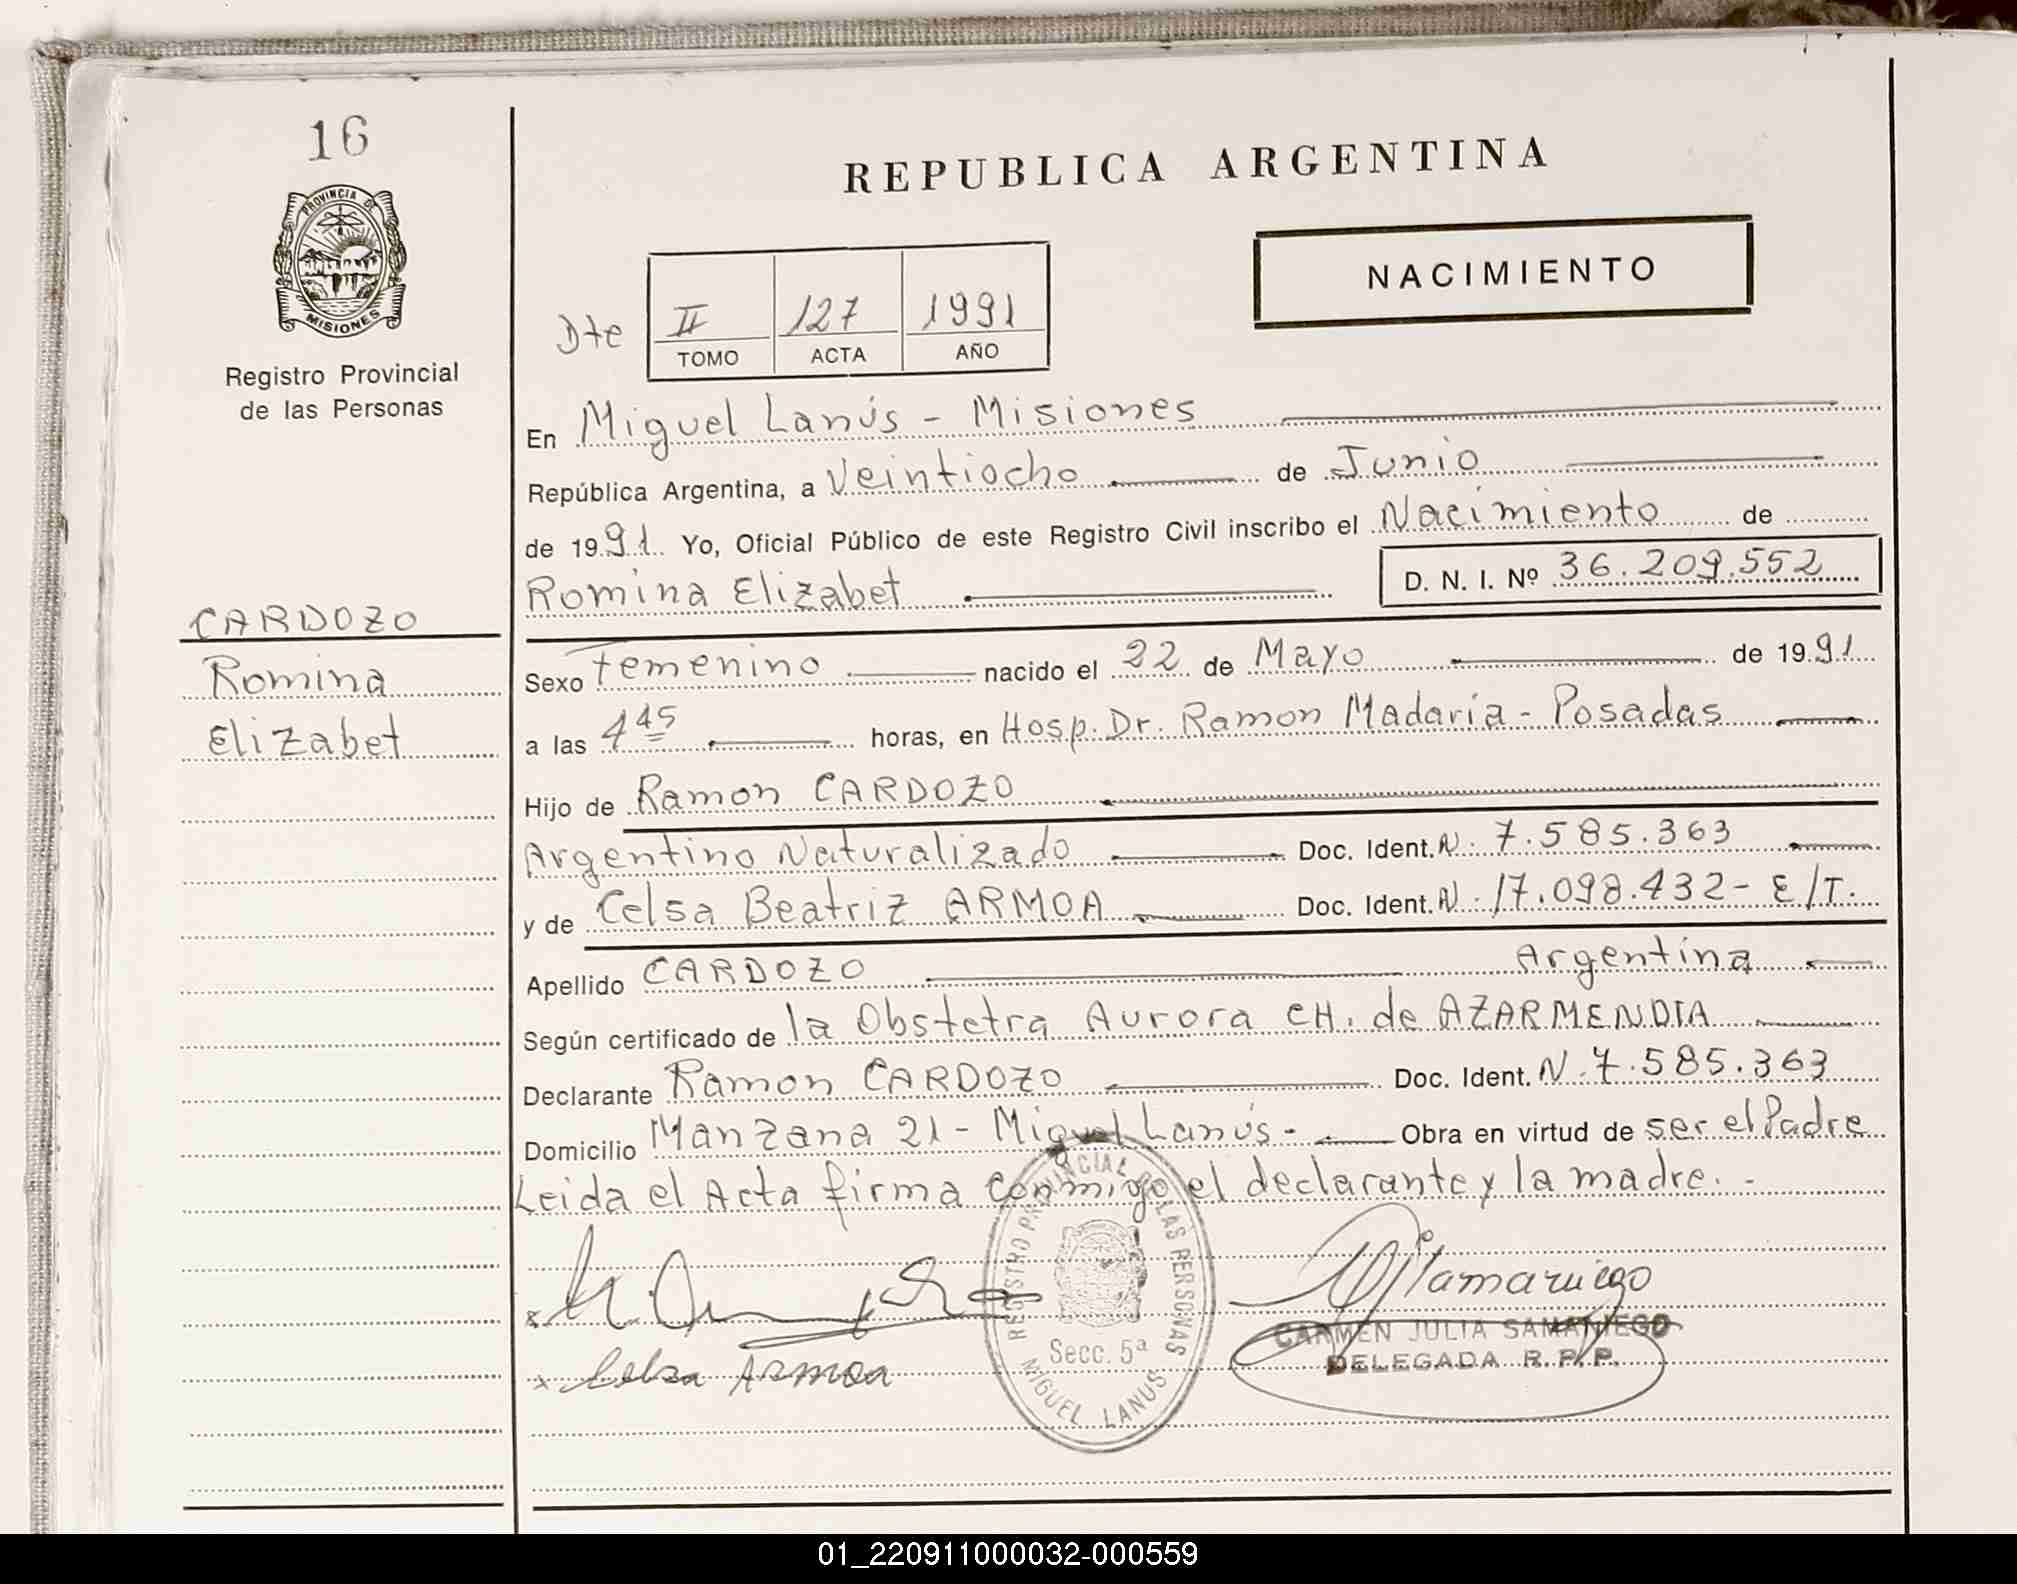 16
PROVINCIA DE
MISIONES
Registro Provincial
de las Personas
CARDOZO
Romina
Elizabet
REPUBLICA ARGENTINA
NACIMIENTO
Dte II 127 1991
TOMO ACTA AÑO
En Miguel Lanús - Misiones
República Argentina, a Veintiocho de Junio
de 1991. Yo, Oficial Público de este Registro Civil inscribo el Nacimiento de
Romina Elizabet D. N. I. Nº 36.209.552
Sexo Femenino nacido el 22 de Mayo de 1991
a las 4 45 horas, en Hosp. Dr. Ramon Madaria - Posadas
Hijo de Ramon CARDOZO
Argentino Naturalizado Doc. Ident. N. 7.585.363
y de Celsa Beatriz ARMOA Doc. Ident. N. 17.098.432- E/T.
Apellido CARDOZO Argentina
Según certificado de la Obstetra Aurora CH. de AZARMENDIA
Declarante Ramon CARDOZO Doc. Ident. N. 7.585.363
Domicilio Manzana 21 - Miguel Lanús - Obra en virtud de ser el Padre
Leida el Acta firma conmigo el declarante y la madre. -
REGISTRO PROVINCIAL DE LAS PERSONAS
Secc. 5ª
MIGUEL LANUS
x Celsa ARMOA
CARMEN JULIA SAMANIEGO
DELEGADA R.P.P.
01_220911000032-000559